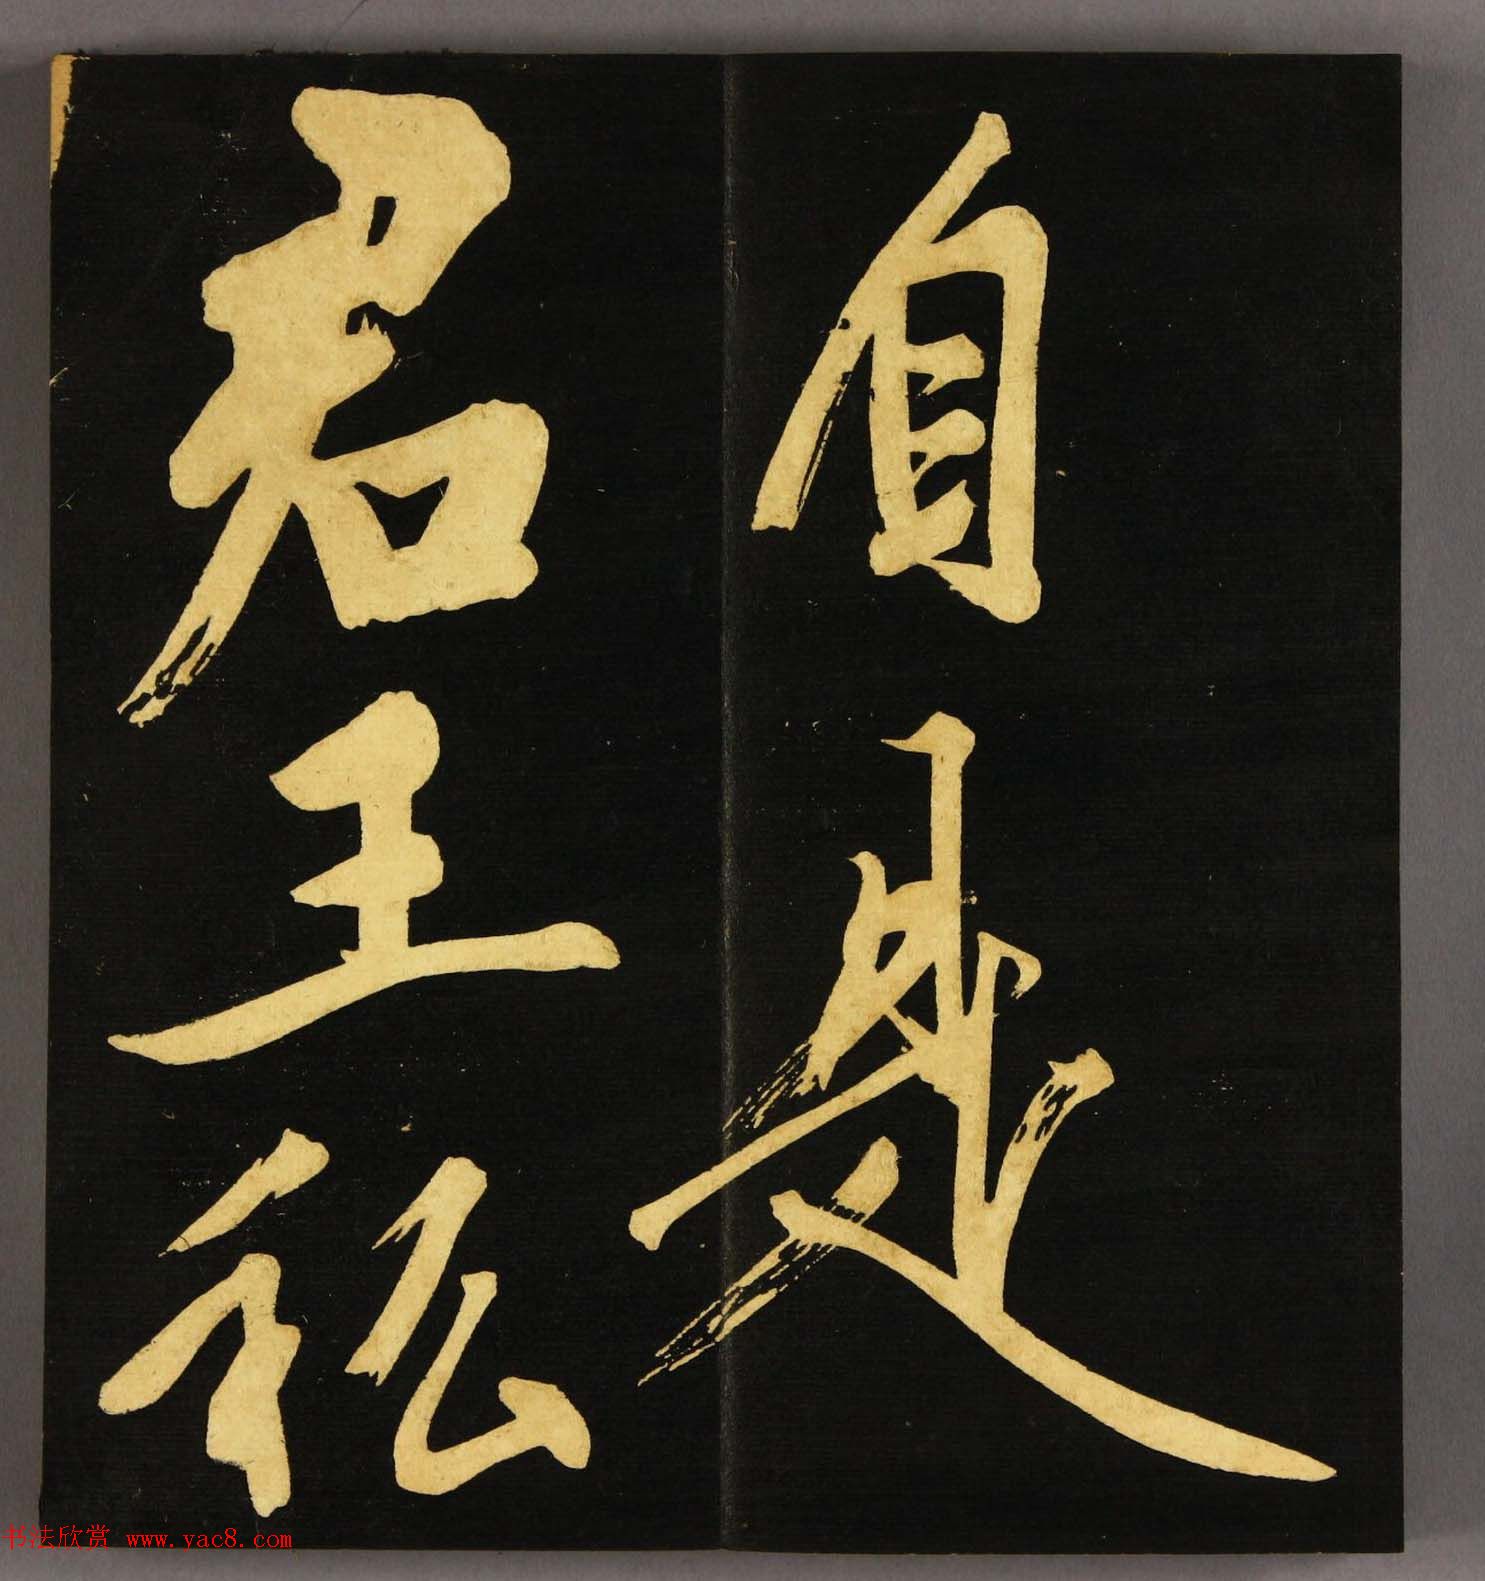 自是
君王私
书法欣赏 www.yac8.com